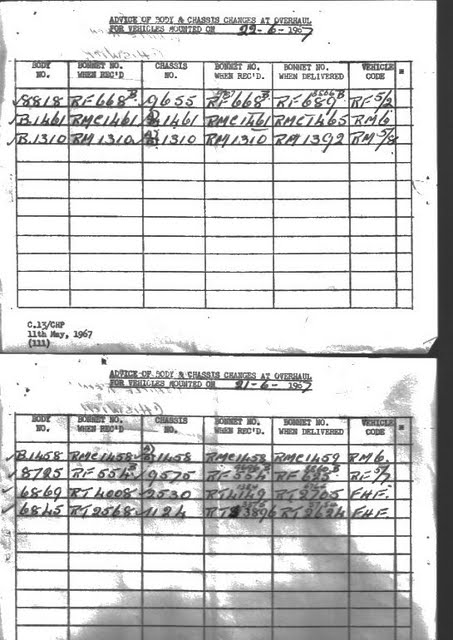 ADVICE OF BODY & CHASSIS CHANGES AT OVERHAUL
FOR VEHICLES MOUNTED ON 22-6-1967
BODY NO. BONNET NO. WHEN REC'D CHASSIS NO. BONNET NO. WHEN REC'D. BONNET NO. WHEN DELIVERED VEHICLE CODE
✓8818 RF668B 9655 RF668B RF689B RF5/2
✓B.1461 RMC1461 1461 RMC1461 RMC1465 RM6
✓B.1310 RM1310 1310 RM1310 RM1392 RM5/8
C.13/CHP
11th May, 1967
(111)
ADVICE OF BODY & CHASSIS CHANGES AT OVERHAUL
FOR VEHICLES MOUNTED ON 21-6-1967
BODY NO. BONNET NO. WHEN REC'D CHASSIS NO. BONNET NO. WHEN REC'D. BONNET NO. WHEN DELIVERED VEHICLE CODE
✓B.1458 RMC1458 1458 RMC1458 RMC1459 RM6.
✓8725 RF554B 9575 RF554B RF625B RF5/7
✓6869 RT4008 2530 RT4149 RT2705 FHF.
✓6845 RT2568 1124 RT3896 RT2624 FHF.